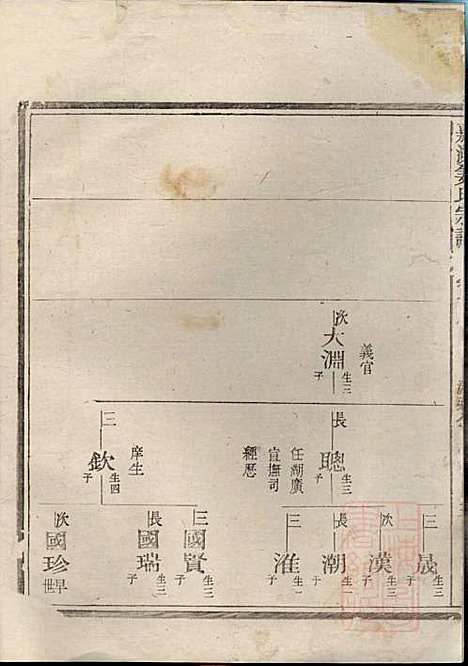 氏宗譜
義官
次
大淵
生三子
長
聰
生三子
任湖廣
宣撫司
經歷
三
欽
生四子
庠生
三
晟
生三子
次
漢
生三子
長
潮
生一子
三
淮
生一子
三
國賢
生三子
長
國瑞
生三子
次
國珍
早世